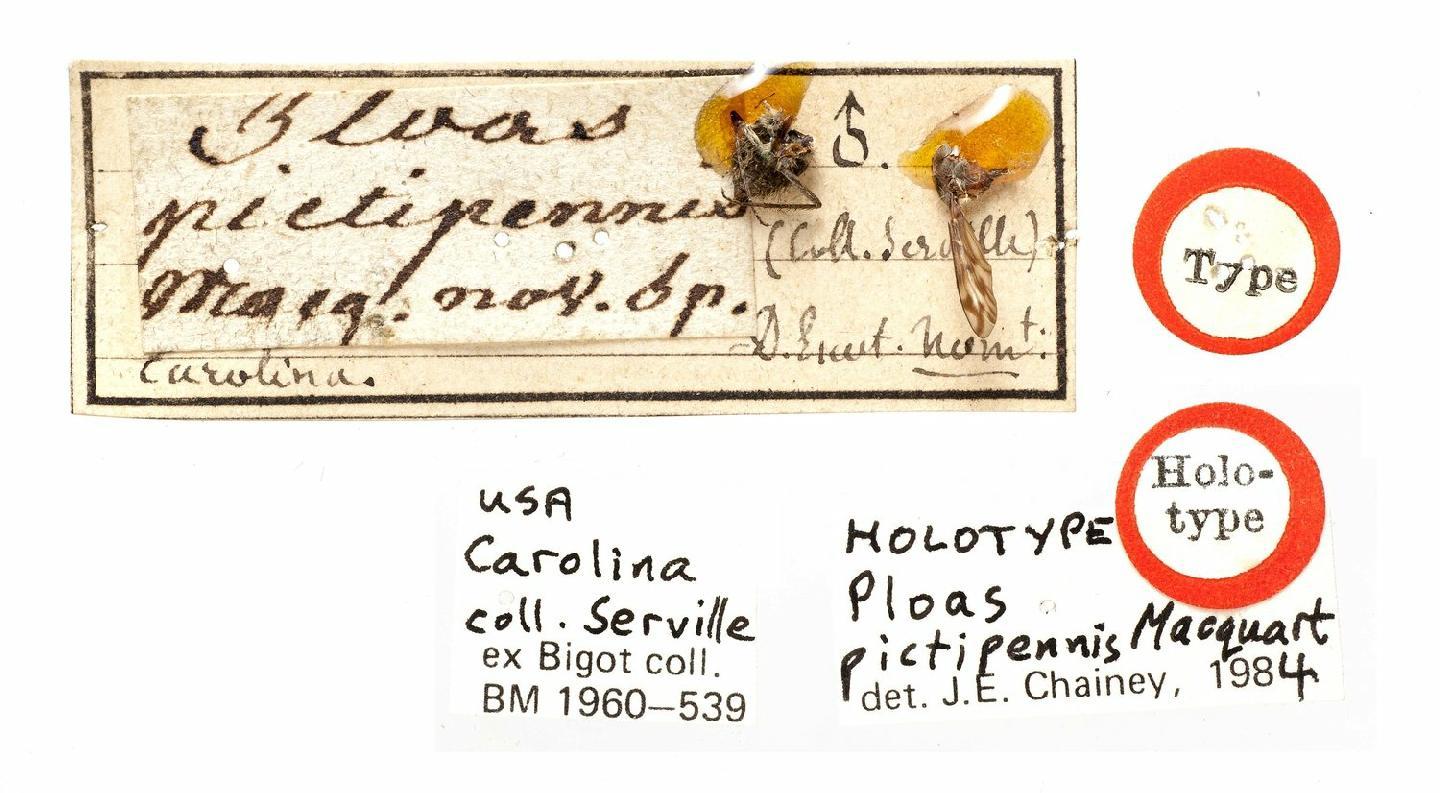 Ploas
pictipennis
Macq. nov. sp.
Carolina.
♂.
(Coll. Serville)
D. Exot. Nomt:
Type
Holo-
type
USA
Carolina
coll. Serville
ex Bigot coll.
BM 1960–539
HOLOTYPE
Ploas
pictipennis Macquart
det. J.E. Chainey, 1984